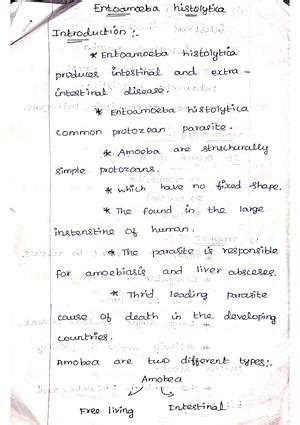 Entoamoeba histolytica
Introduction :-
* Entoamoeba histolytica
produces intestinal and extra-
intestinal disease.
* Entoamoeba histolytica
common protozoan parasite.
* Amoeba are structurally
simple protozoans.
* which have no fixed shape.
* The found in the large
instenstine of human.
* The parasite is responsible
for amoebiasis and liver abscesses.
* Thrid leading parasite
cause of death in the developing
countries.
Amobea are two different types:-
Amobea
Free living Intestinal